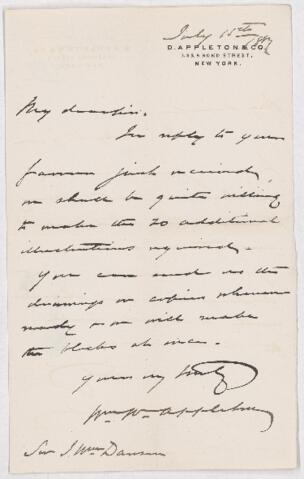 July 15th 1887
D. APPLETON & CO.
1, 3 & 5 BOND STREET,
NEW YORK.
My dear Sir.
In reply to your
favour just received,
we shall be quite willing
to make the 20 additional
illustrations required.
You can send us the
drawings or copies whenever
ready & we will make
the blocks at once.
Yours very truly
Wm W. Appleton
Sir J Wm Dawson